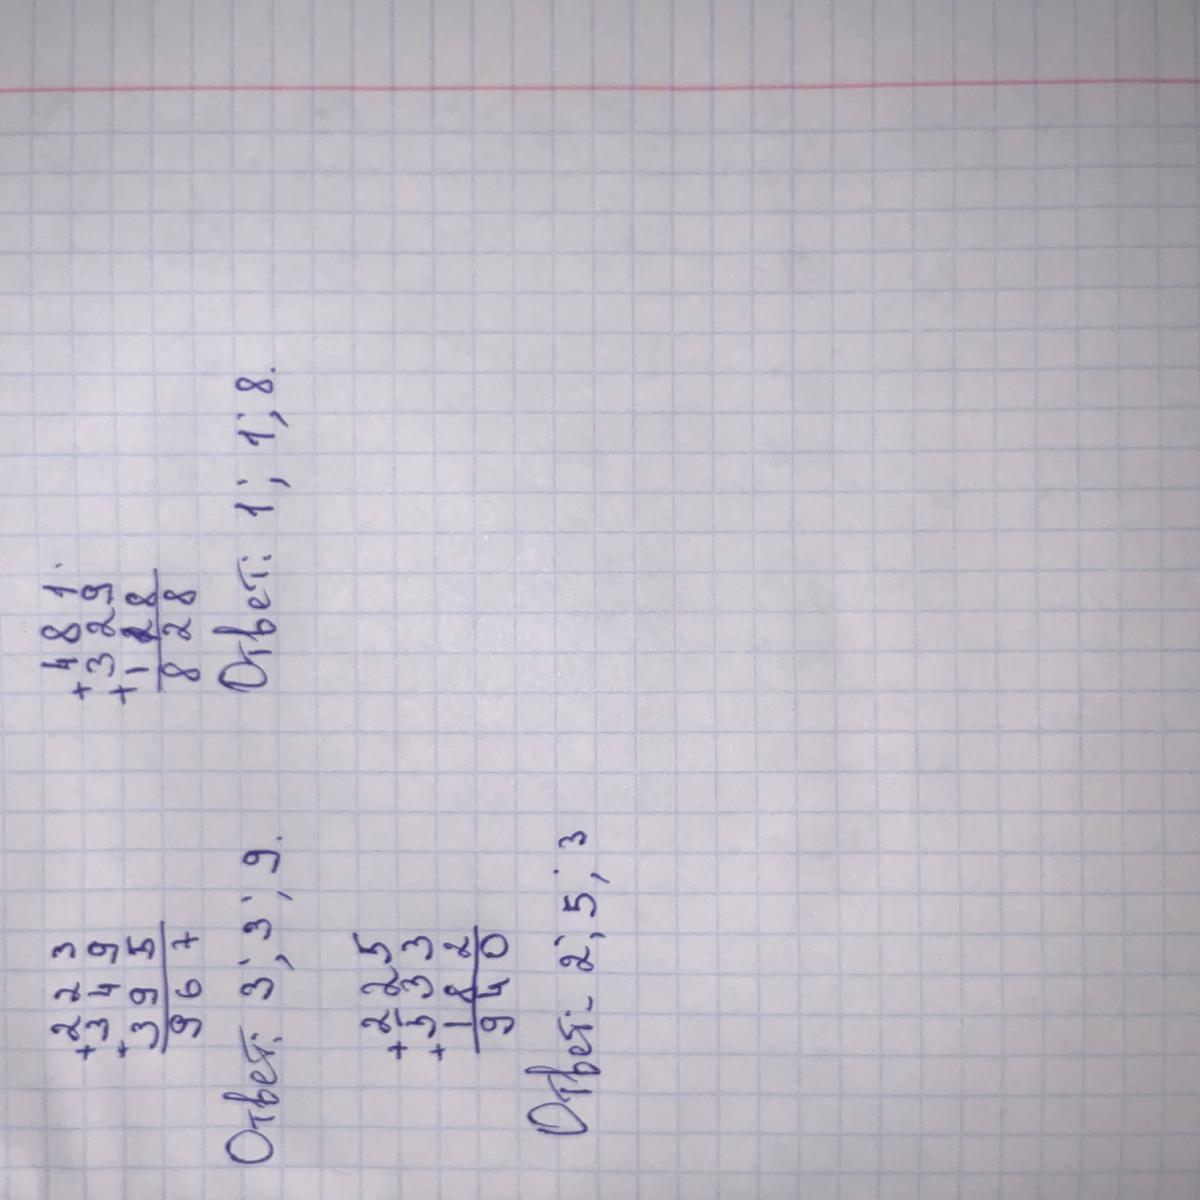 223
+349
+395
967
Ответ: 3; 3; 9.
481
+329
+128
828
Ответ: 1; 1; 8.
225
+533
+182
940
Ответ: 2; 5; 3